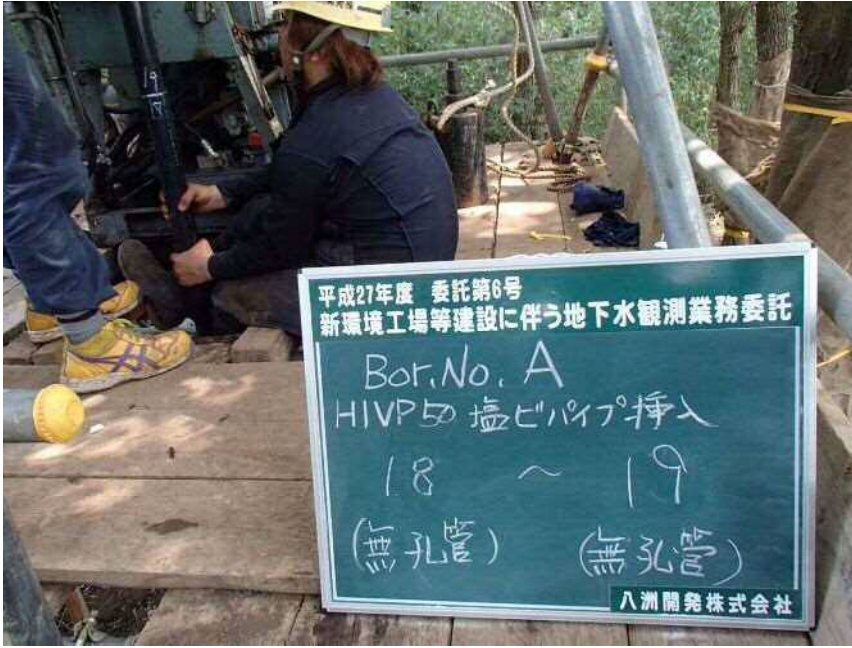 19
18
平成27年度 委託第6号
新環境工場等建設に伴う地下水観測業務委託
Bor.No. A
HIVP50 塩ビパイプ挿入
18 ～ 19
(無孔管) (無孔管)
八洲開発株式会社